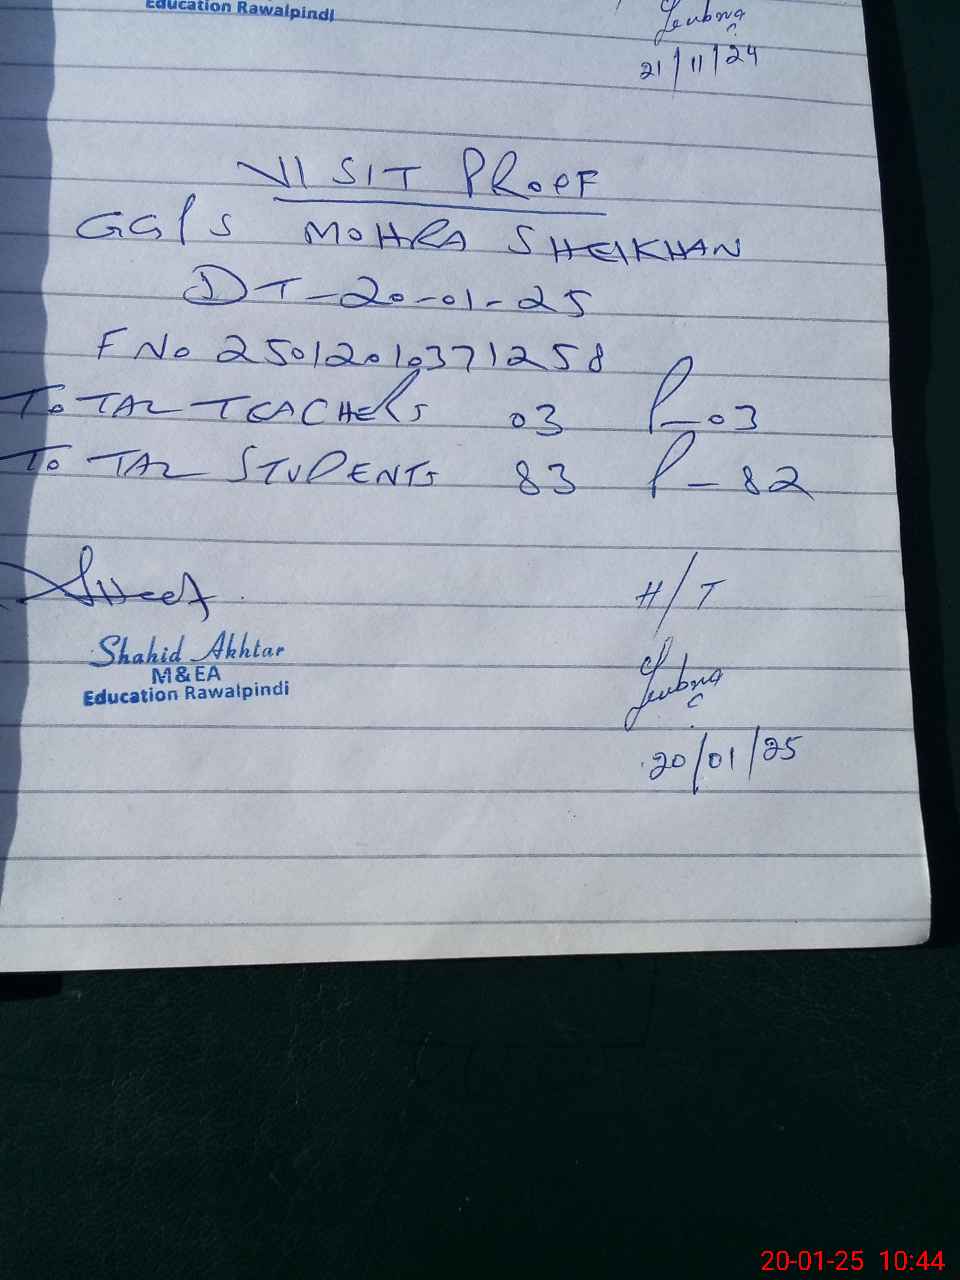 Education Rawalpindi
Lubna
21/11/24
VISIT PROOF
GGPS MOHRA SHEIKHAN
DT-20-01-25
F No 25012010371258
TOTAL TEACHERS 03 P-03
TOTAL STUDENTS 83 P-82
H/T
Shahid Akhtar
M&EA
Education Rawalpindi
Lubna
20/01/25
20-01-25 10:44